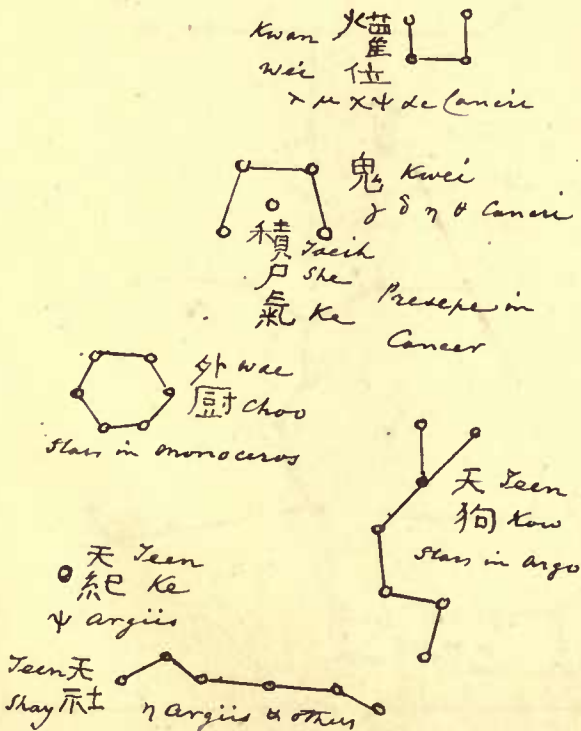 Kwan 爟
Wei 位
λ μ χ ψ &c Cancri
鬼 Kwei
γ δ η θ Cancri
積 Tseih
尸 She
氣 Ke
Presepe in
Cancer
外 Wae
厨 Choo
Stars in Monoceros
天 Teen
狗 Kow
Stars in Argo
天 Teen
紀 Ke
ψ Argûs
Teen 天
Shay 社
η Argûs & others